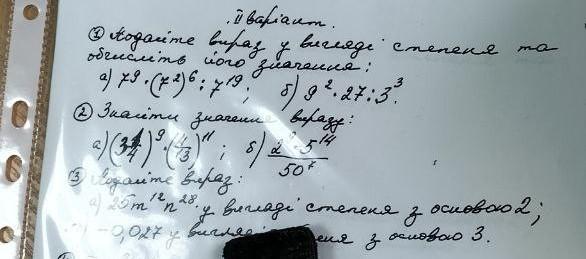 II варіант.
① Подайте вираз у вигляді степеня та
обчисліть його значення:
а) 7⁹ · (7²)⁶ : 7¹⁹; б) 9² · 27 : 3³.
② Знайти значення виразу:
а) (3 1/4)⁹ · (4/13)¹¹; б) 5¹⁴ / 50⁷
③ Подайте вираз:
а) 25m¹²n²⁸ у вигляді степеня з основою 2;
-0,027 у з основою 3.